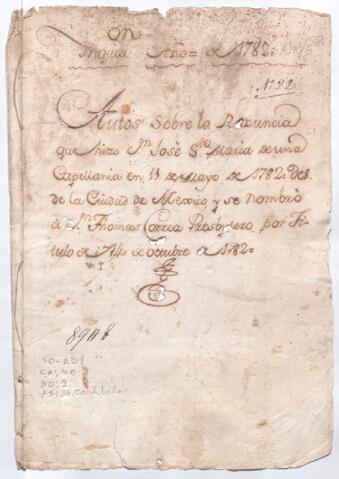 Año = de 1782 =
N. 22
Autos Sobre la Renuncia
que hizo Dn. Josè Sta. Maria de una
Capellania en 11 de Mayo de 1782= des
de la Ciudad de Mexico, y se Nombrò
à Dn. Thomas Correa Presbytero, por Ti-
tulo de 14= de octubre de 1782=
8908
CA: 40